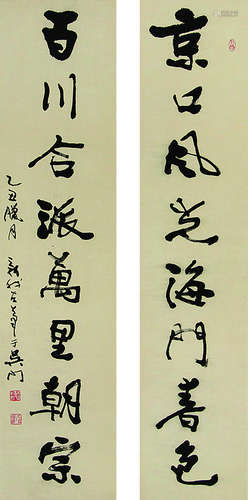 京口風光海門春色
百川合派萬里朝宗
乙丑臘月